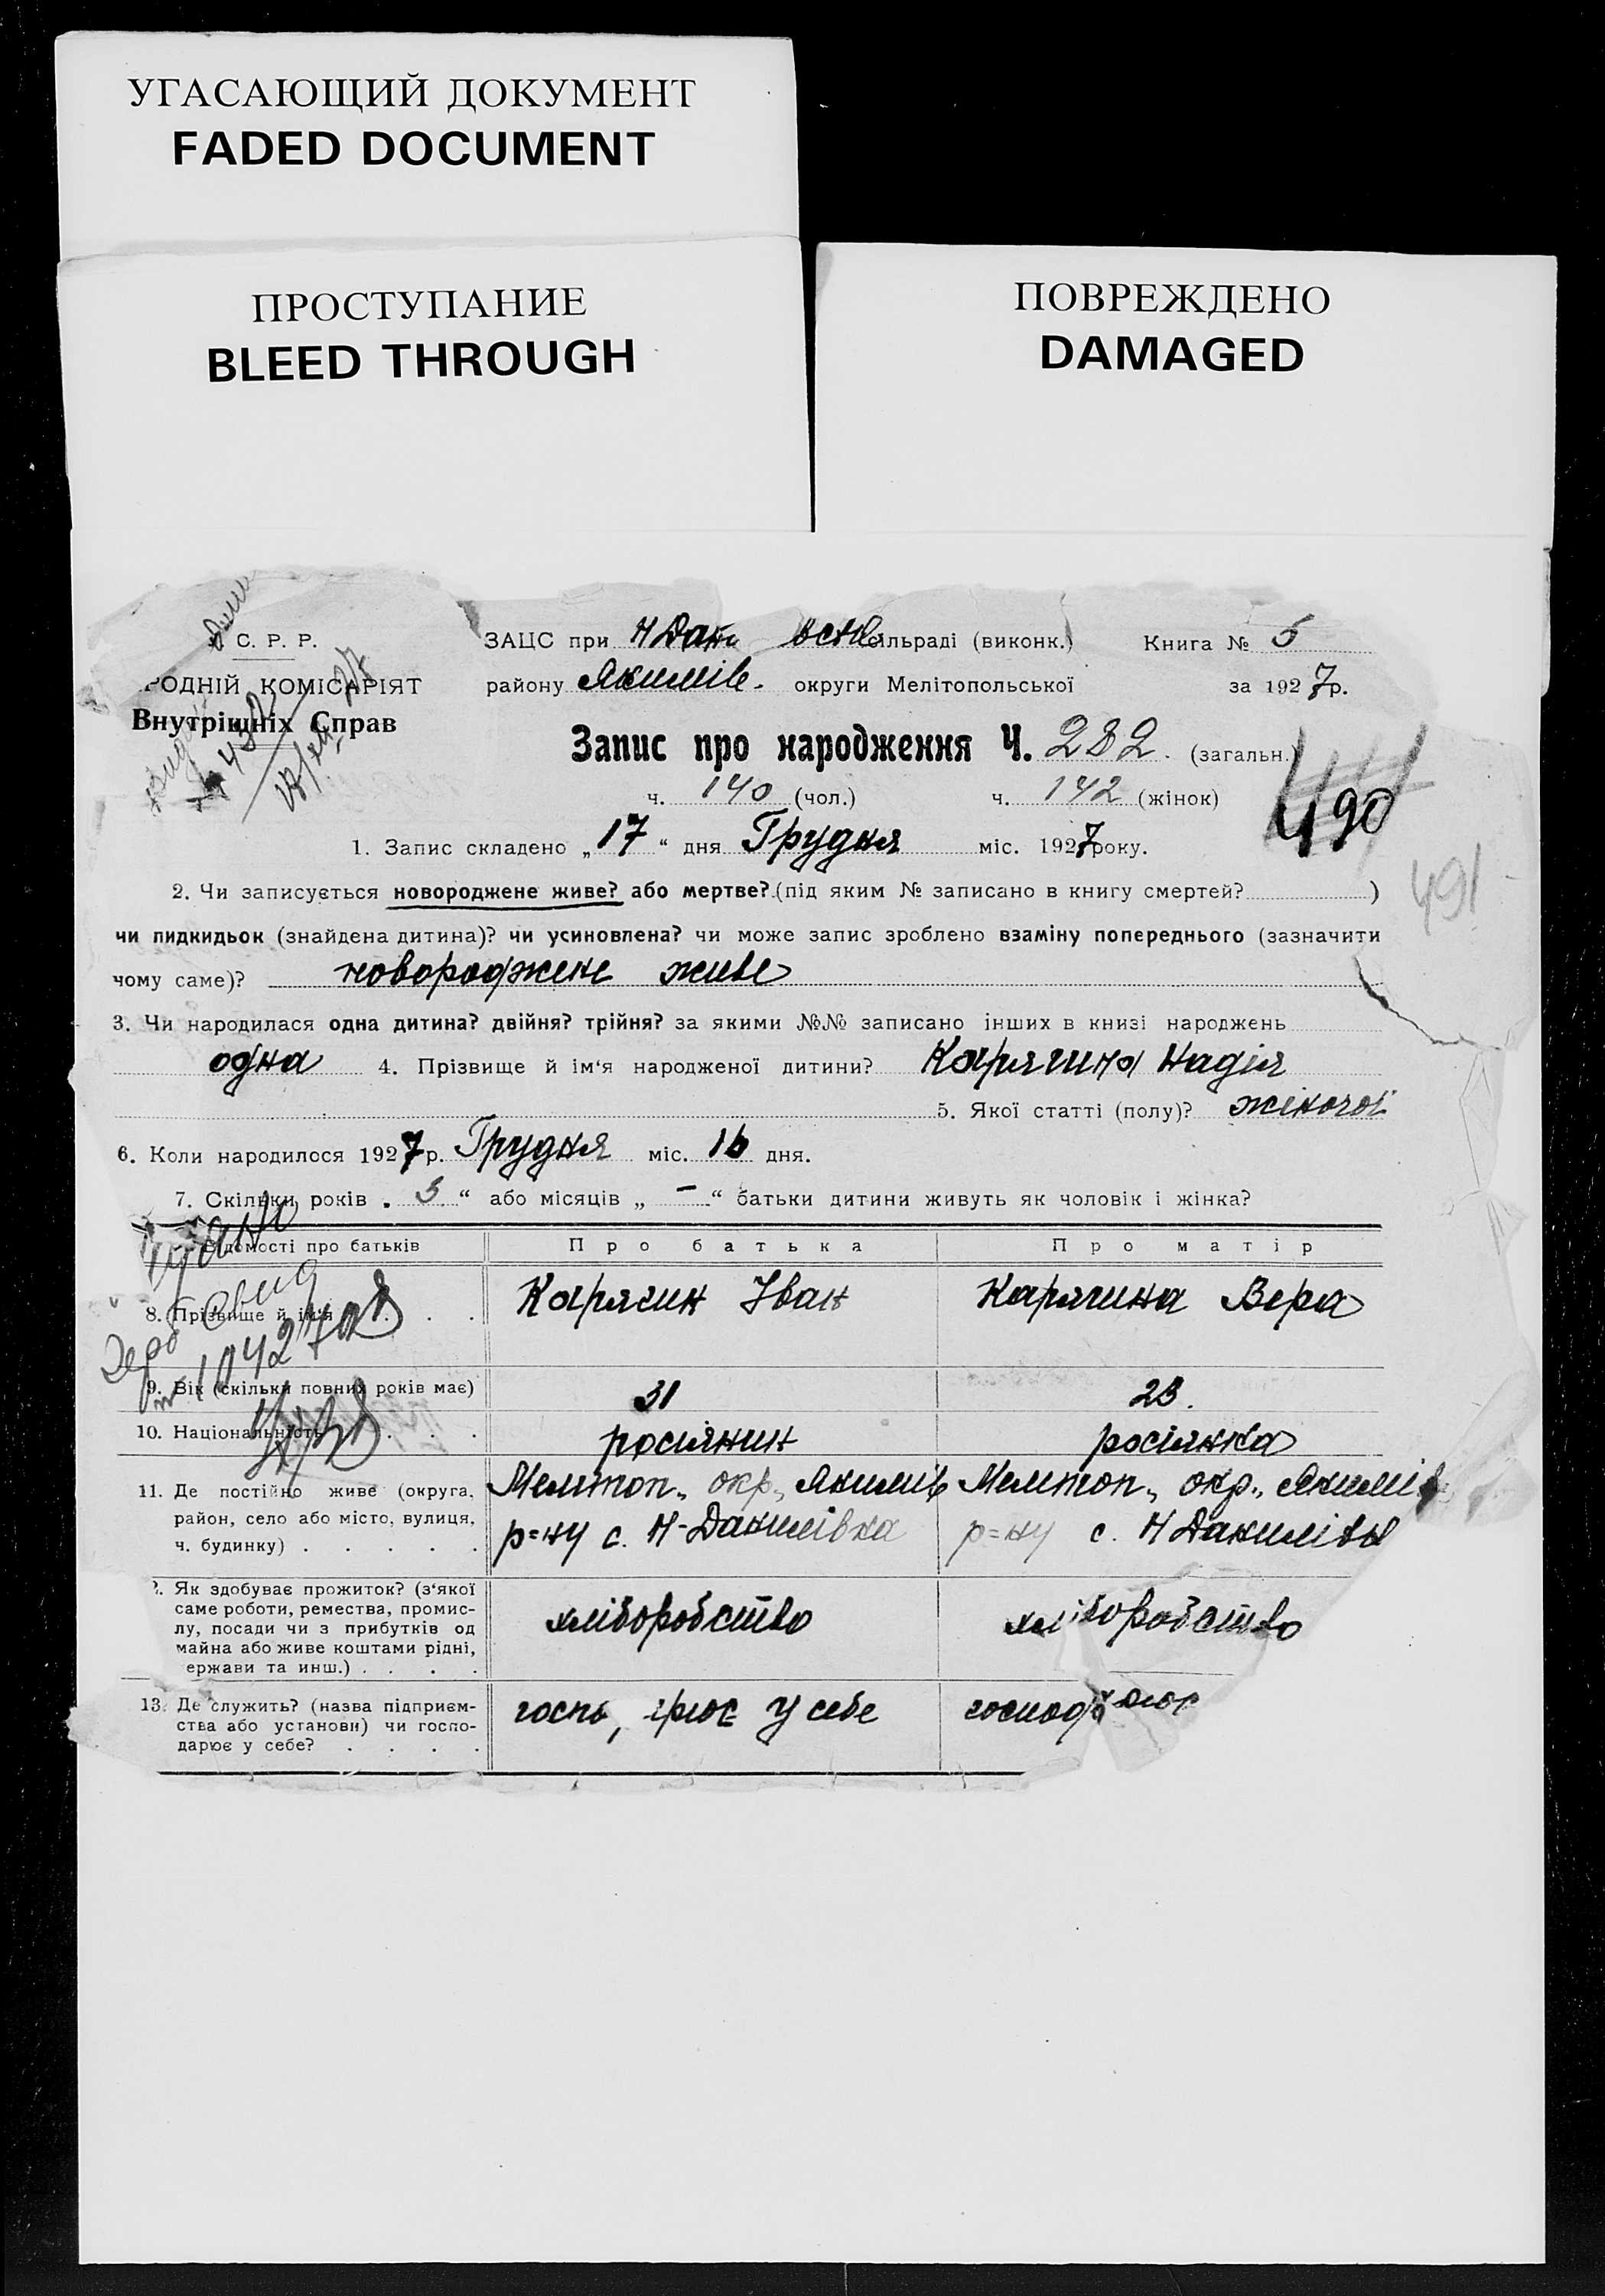 УГАСАЮЩИЙ ДОКУМЕНТ
FADED DOCUMENT
ПРОСТУПАНИЕ
BLEED THROUGH
ПОВРЕЖДЕНО
DAMAGED
С. Р. Р.
РОДНІЙ КОМІСАРІЯТ
Внутрішніх Справ
ЗАЦС при Н Дан сільраді (виконк.) Книга № 5
району Якимів. округи Мелітопольської за 1927р.
Запис про народження Ч. 282. (загальн.)
ч. 140 (чол.) ч. 142 (жінок)
490
1. Запис складено „17“ дня Грудня міс. 1927року.
491
2. Чи записується новороджене живе? або мертве? (під яким № записано в книгу смертей? )
чи пидкидьок (знайдена дитина)? чи усиновлена? чи може запис зроблено взаміну попереднього (зазначити
чому саме)? новороджене живе
3. Чи народилася одна дитина? двійня? трійня? за якими №№ записано інших в книзі народжень
одна 4. Прізвище й ім‘я народженої дитини? Карягина Надія
5. Якої статті (полу)? жіночої
6. Коли народилося 1927р. Грудня міс. 16 дня.
7. Скільки років „ “ або місяців „ — “ батьки дитини живуть як чоловік і жінка?
Відомості про батьків Про батька Про матір
8. Прізвище й ім'я . . . Карягин Іван Карягина Вера
9. Вік (скільки повних років має) 31 23.
10. Національність . . . росіянин росіянка
11. Де постійно живе (округа, район, село або місто, вулиця, ч. будинку) . . . . .
Мелітоп., окр., Якимів р=ну с. Н-Данилівка
Мелітоп., окр., Якимів р=ну с. Н Данилівка
. Як здобуває прожиток? (з‘якої саме роботи, ремества, промислу, посади чи з прибутків од майна або живе коштами рідні, ержави та инш.) . . . .
хліборобство хліборобство
13. Де служить? (назва підприємства або установи) чи господарює у себе? . . . .
у себе